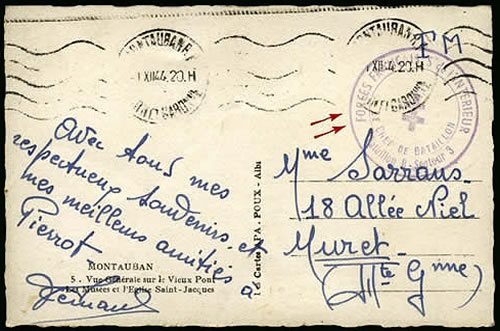 MONTAUBAN R.P
1 XII 44.20.H
TARN ET GARONNE
MONTAUBAN R.P
1 XII 44.20.H
TARN ET GARONNE
F M
FORCES FRANÇAISES DE L'INTÉRIEUR
CHEF DE BATAILLON
Secteur 3
Avec tous mes
respectueux souvenirs, et
mes meilleurs amitiés à
Pierrot
MONTAUBAN
5. - Vue Générale sur le Vieux Pont
Les Musées et l'Eglise Saint-Jacques
Les Cartes A.PA. - POUX - Albi
Mme Sarraus
18 Allée Niel
Muret
(Hte Gnne)